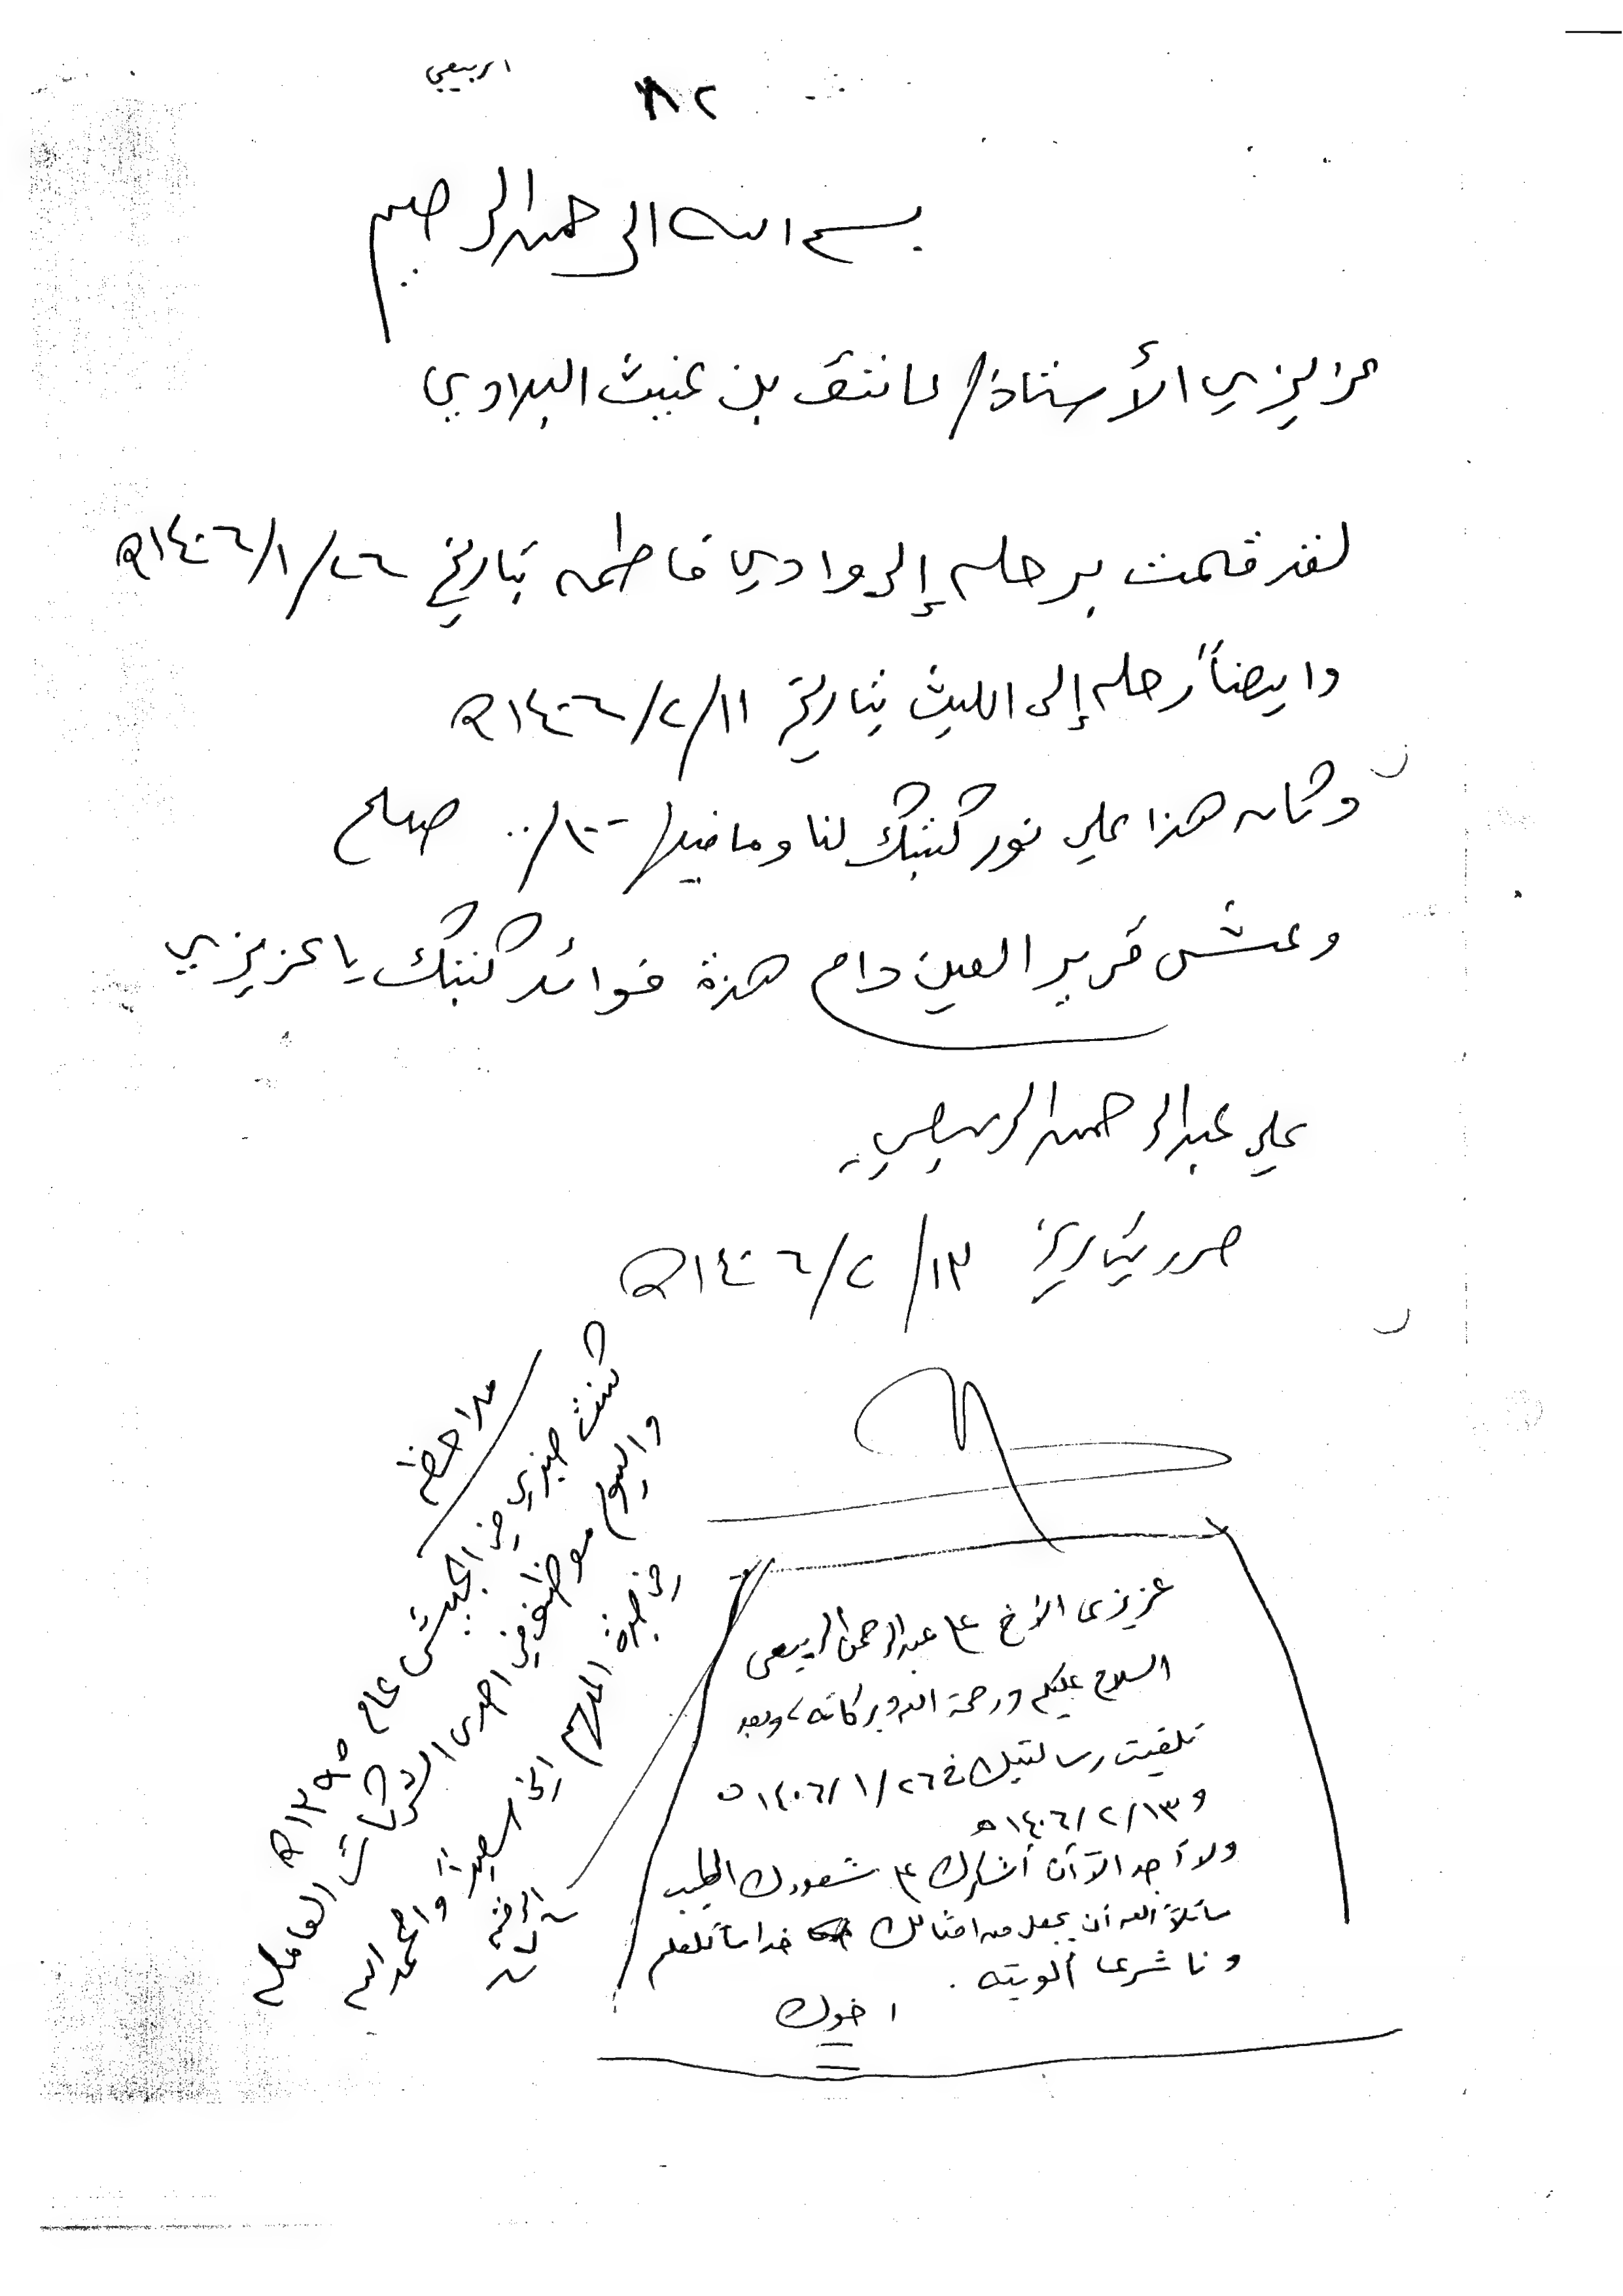 الربيعي
٨٢
بسم الله الرحمن الرحيم
عزيزي الأستاذ/ عاتق بن غيث البلادي
لقد قمت برحله إلى وادي فاطمه بتاريخ ٢٦/١/١٤٠٦ه
وايضاً رحله إلى الليث بتاريخ ١١/٢/١٤٠٦ه
وكان هذا على نور كتبك لنا وما فيها ١٠٠/.. صلح
وعش قرير العين دام هذة فوائد كتبك يا عزيزي
علي عبدالرحمن الربيعي
حرر بتاريخ ١٣/٢/١٤٠٦ه
ملاحظه
كنت جندي في الجيش عام ١٣٩٥ه
واليوم موظف في احدى الشركات العامله
في جدة المهم اني سعيداً والحمد الله
عزيزى الأخ علي عبدالرحمن الربيعى
السلام عليكم ورحمة الله وبركاته، وبعد
تلقيت رسالتيك في ٢٦/١/١٤٠٦ه
و ١٣/٢/١٤٠٦ه
ولا أجد الا أن أشكرك على شعورك الطيب
سائلاً الله أن يجعل من امثالك خداماً للعلم
وناشرى ألويته .
اخوك